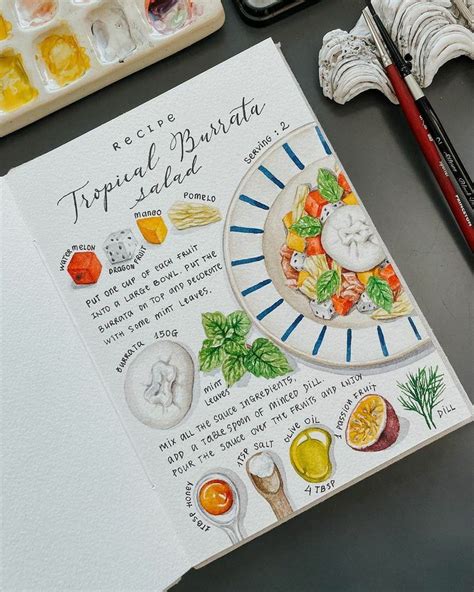 RECIPE
Tropical Burrata
Salad
SERVING : 2
WATERMELON
DRAGON FRUIT
MANGO
POMELO
PUT ONE CUP OF EACH FRUIT
INTO A LARGE BOWL. PUT THE
BURRATA ON TOP AND DECORATE
WITH SOME MINT LEAVES.
BURRATA 150G
MINT
LEAVES
MIX ALL THE SAUCE INGREDIENTS,
ADD A TABLESPOON OF MINCED DILL.
POUR THE SAUCE OVER THE FRUITS AND ENJOY
1TBSP HONEY
1TSP SALT
OLIVE OIL
4 TBSP
1 PASSION FRUIT
DILL